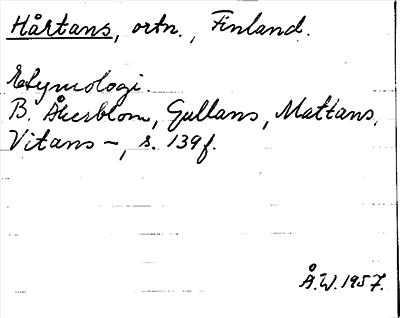 Hårtans, ortn., Finland.
Etymologi.
B. Åkerblom, Gullans, Mattans,
Vitans –, s. 139f.
Å.W. 1957.